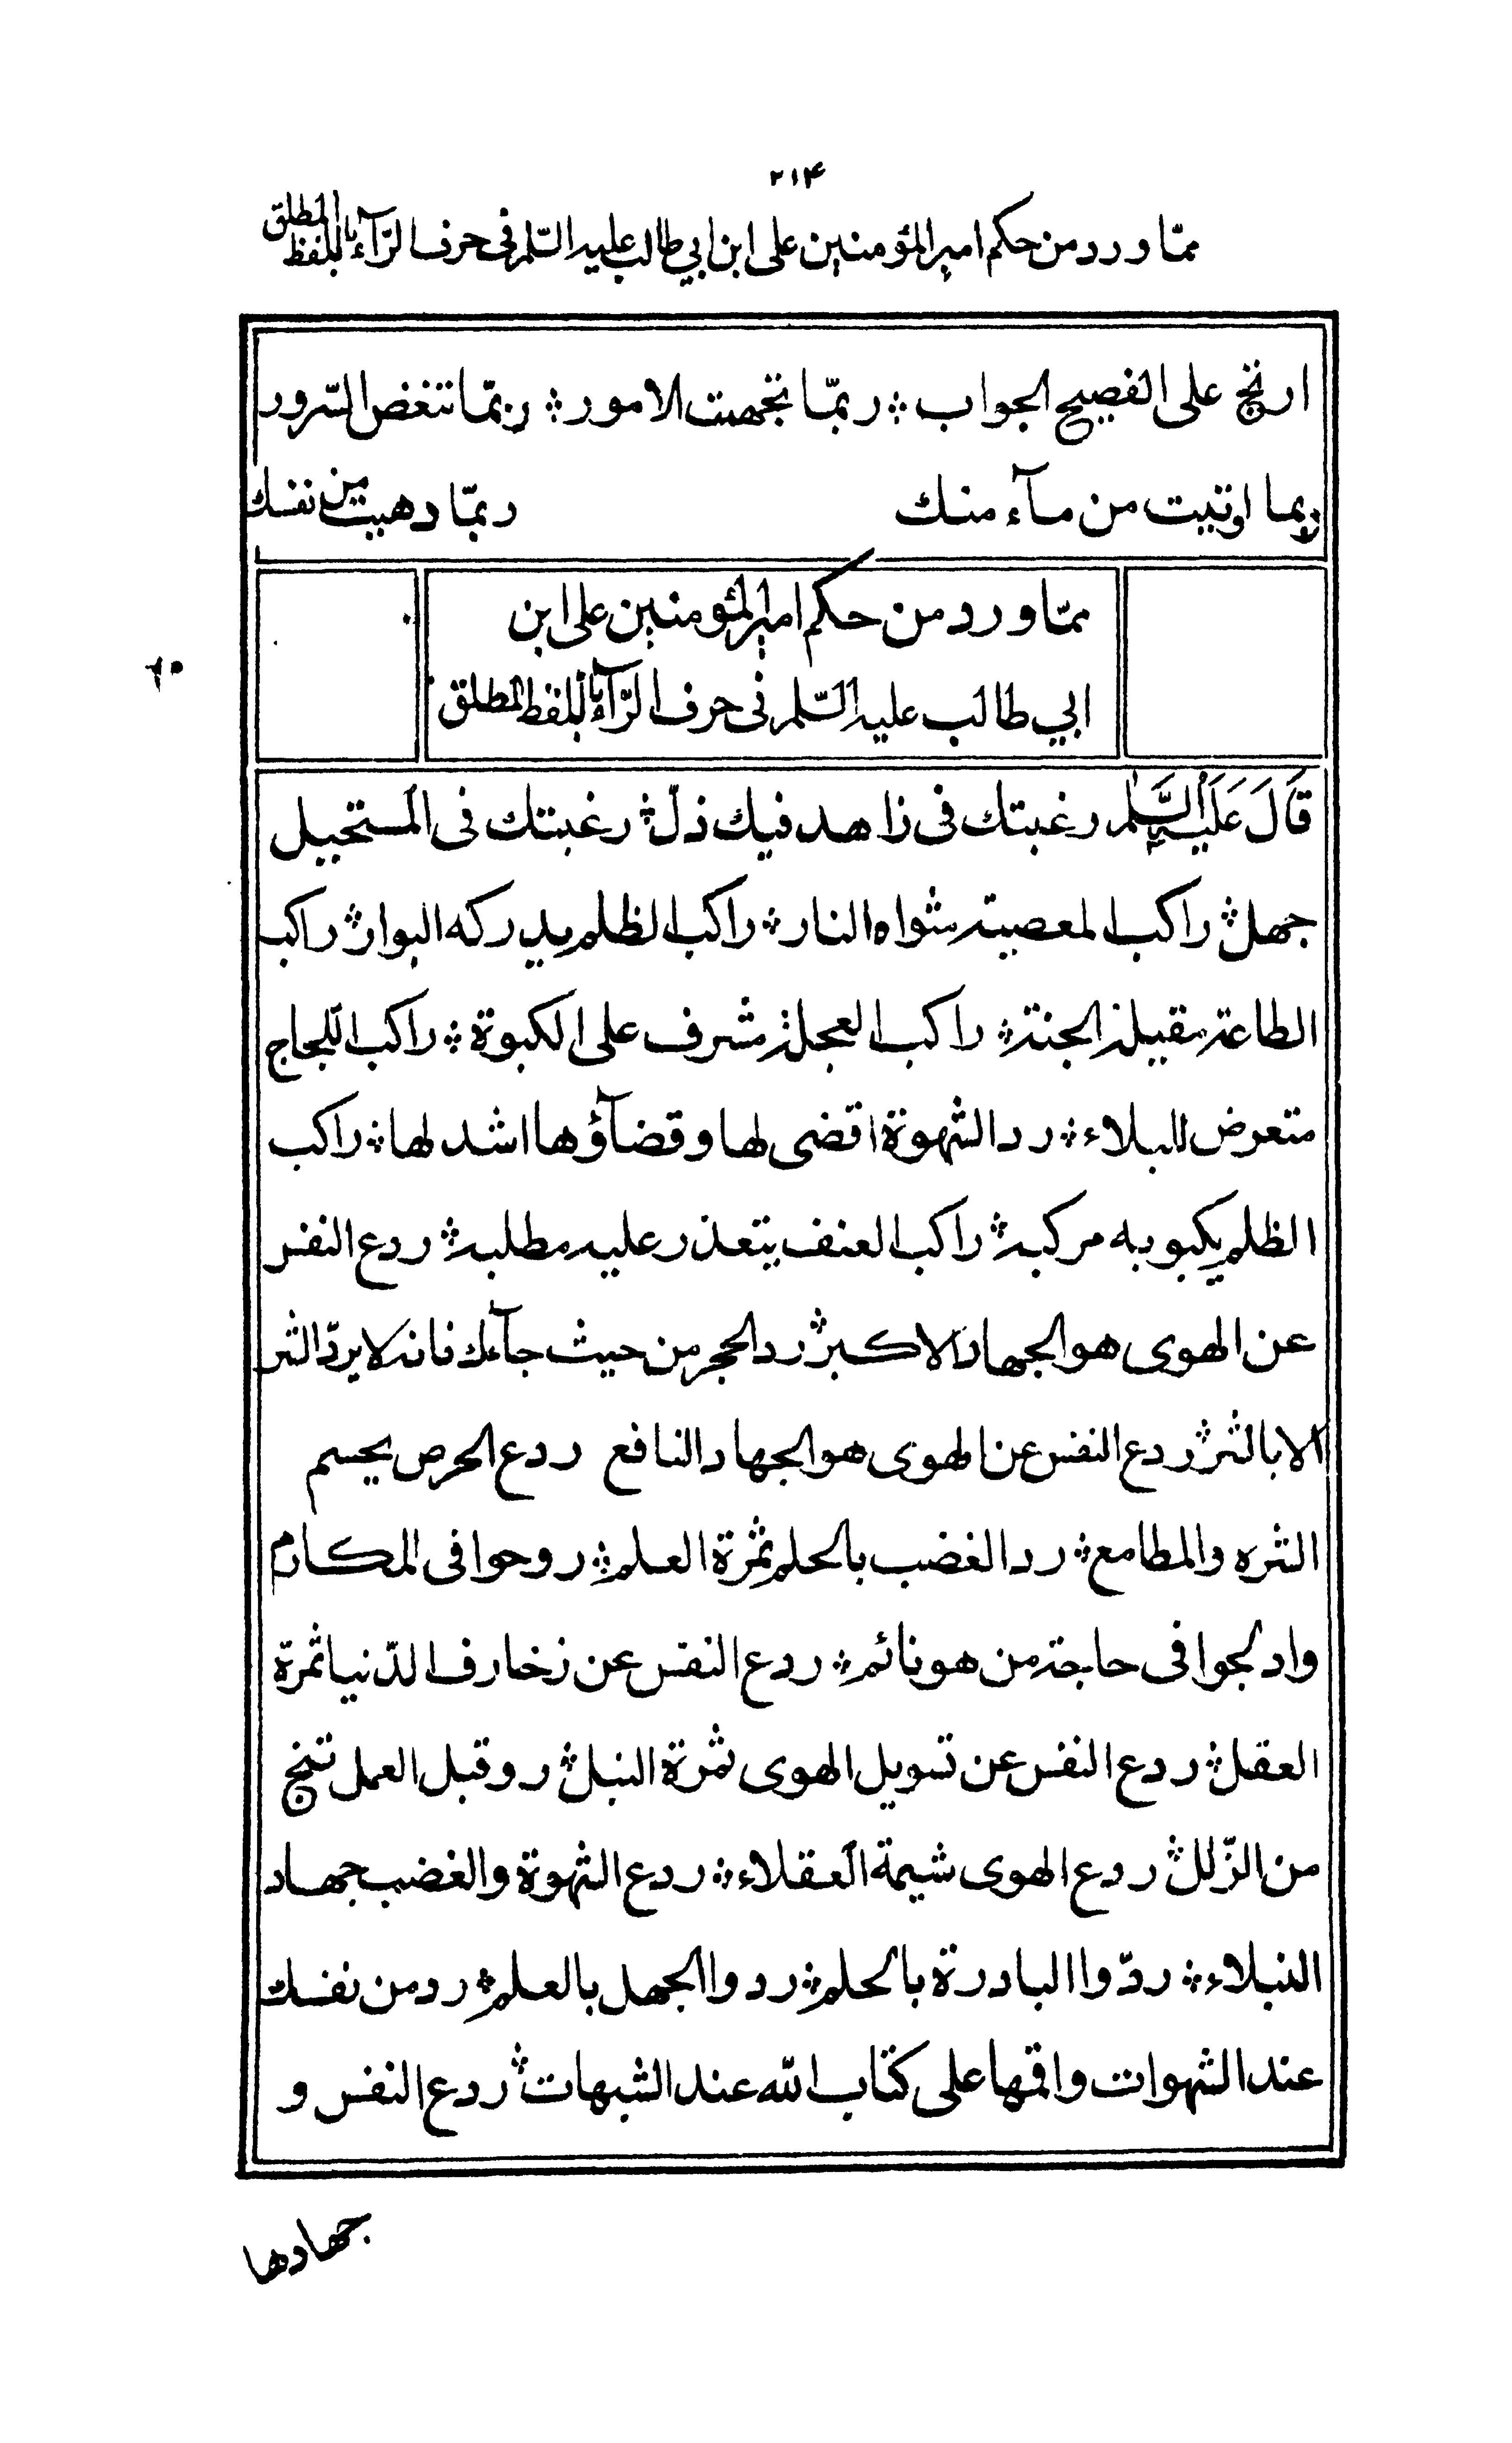 ۲۱۴
ممّا ورد من حكم امير المؤمنين على ابن ابي طالب عليه السّلم فى حرف الرّآء باللفظ المطلق
ارتج على الفصيح الجواب ؞ ربمّا تجهمت الامور ؞ ربمّا تنغص السّرور
ربما اوتيت من مآء منك ربمّا دهيت من نفسك
ممّا ورد من حكم امير المؤمنين على ابن
ابي طالب عليه السّلم فى حرف الرّآء باللفظ المطلق
۲۰
قَالَ عَلَيْهِ السَّلٰم رغبتك فى زاهد فيك ذلّ ؞ رغبتك فى المستحيل
جهل ؞ راكب المعصية مثواه النار ؞ راكب الظلم يدركه البوار ؞ راكب
الطاعة مقيله الجنة ؞ راكب العجلة مشرف على الكبوة ؞ راكب اللّجاج
متعرض للبلاء ؞ رد الشهوة اقضى لها وقضآؤها اشد لها ؞ راكب
الظلم يكبو به مركبه ؞ راكب العنف يتعذر عليه مطلبه ؞ ردع النفس
عن الهوى هو الجهاد الاكبر ؞ رد الحجر من حيث جآءك فانه لا يردّ الشر
الا بالشر ؞ ردع النفس عن الهوى هو الجهاد النافع ردع الحرص يحسم
الشره والمطامع ؞ رد الغضب بالحلم ثمرة العلم ؞ روحوا فى المكارم
وادلجوا فى حاجة من هو نائم ؞ ردع النفس عن زخارف الدّنيا ثمرة
العقل ؞ ردع النفس عن تسويل الهوى ثمرة النبل ؞ رو قبل العمل تنج
من الزّلل ؞ ردع الهوى شيمة العقلاء ؞ ردع الشهوة والغضب جهاد
النبلاء ؞ ردّوا البادرة بالحلم ؞ ردوا الجهل بالعلم ؞ رد من نفسك
عند الشهوات واقمها على كتاب الله عند الشبهات ؞ ردع النفس و
جهادها